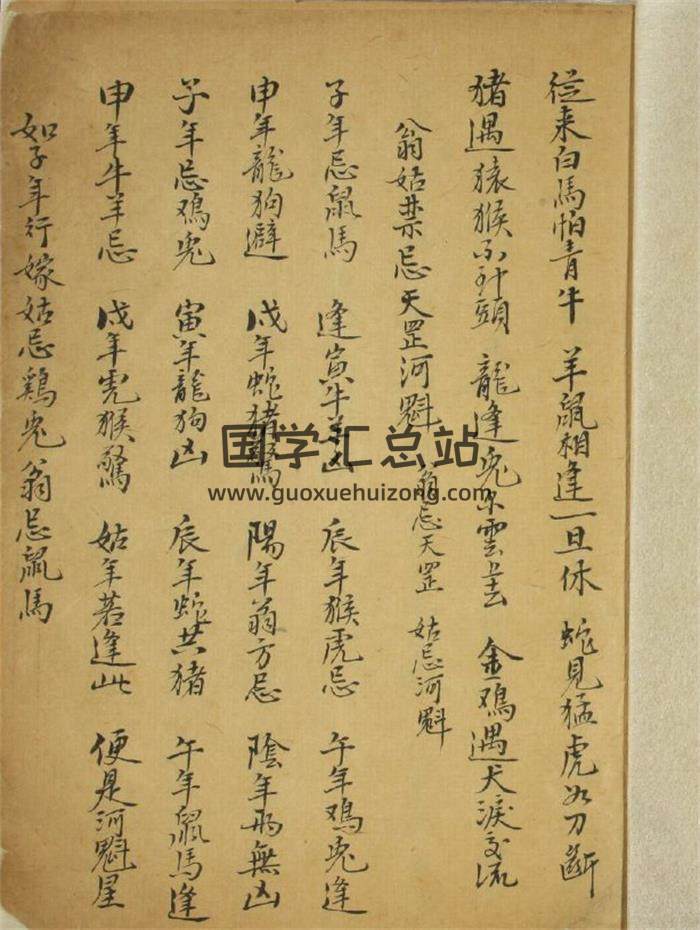 從来白馬怕青牛 羊鼠相逢一旦休 蛇見猛虎如刀斷
猪遇猿猴不到頭 龍逢兎不雲去 金鷄遇犬淚交流
翁姑禁忌天罡河魁 翁忌天罡 姑忌河魁
子年忌鼠馬 逢寅牛羊凶 辰年猴虎忌 午年鷄兎逢
申年龍狗避 戌年蛇猪驚 陽年翁方忌 陰年而無凶
子年忌鷄兎 寅年龍狗凶 辰年蛇共猪 午年鼠馬逢
申年牛羊忌 戌年虎猴驚 姑年若逢此 便是河魁星
如子年行嫁姑忌鷄兎翁忌鼠馬
国学汇总站
www.guoxuehuizong.com